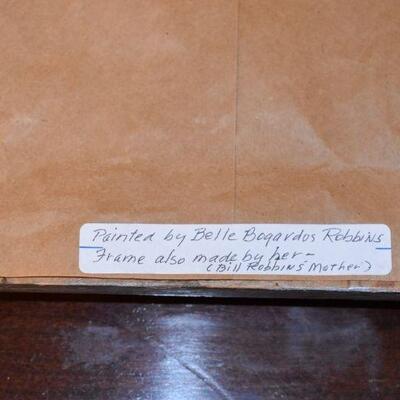 Painted by Belle Bogardos Robbins
Frame also made by her -
(Bill Robbins' Mother)